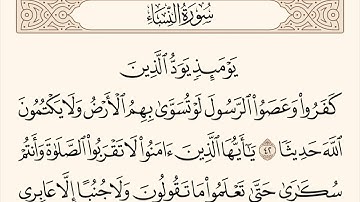 سُورَةُ النِّسَاءِ
يَوْمَئِذٍ يَوَدُّ الَّذِينَ
كَفَرُوا۟ وَعَصَوُا۟ الرَّسُولَ لَوْ تُسَوَّىٰ بِهِمُ الْأَرْضُ وَلَا يَكْتُمُونَ
اللَّهَ حَدِيثًا ٤٢ يَٰٓأَيُّهَا الَّذِينَ ءَامَنُوا۟ لَا تَقْرَبُوا۟ الصَّلَوٰةَ وَأَنتُمْ
سُكَٰرَىٰ حَتَّىٰ تَعْلَمُوا۟ مَا تَقُولُونَ وَلَا جُنُبًا إِلَّا عَابِرِى